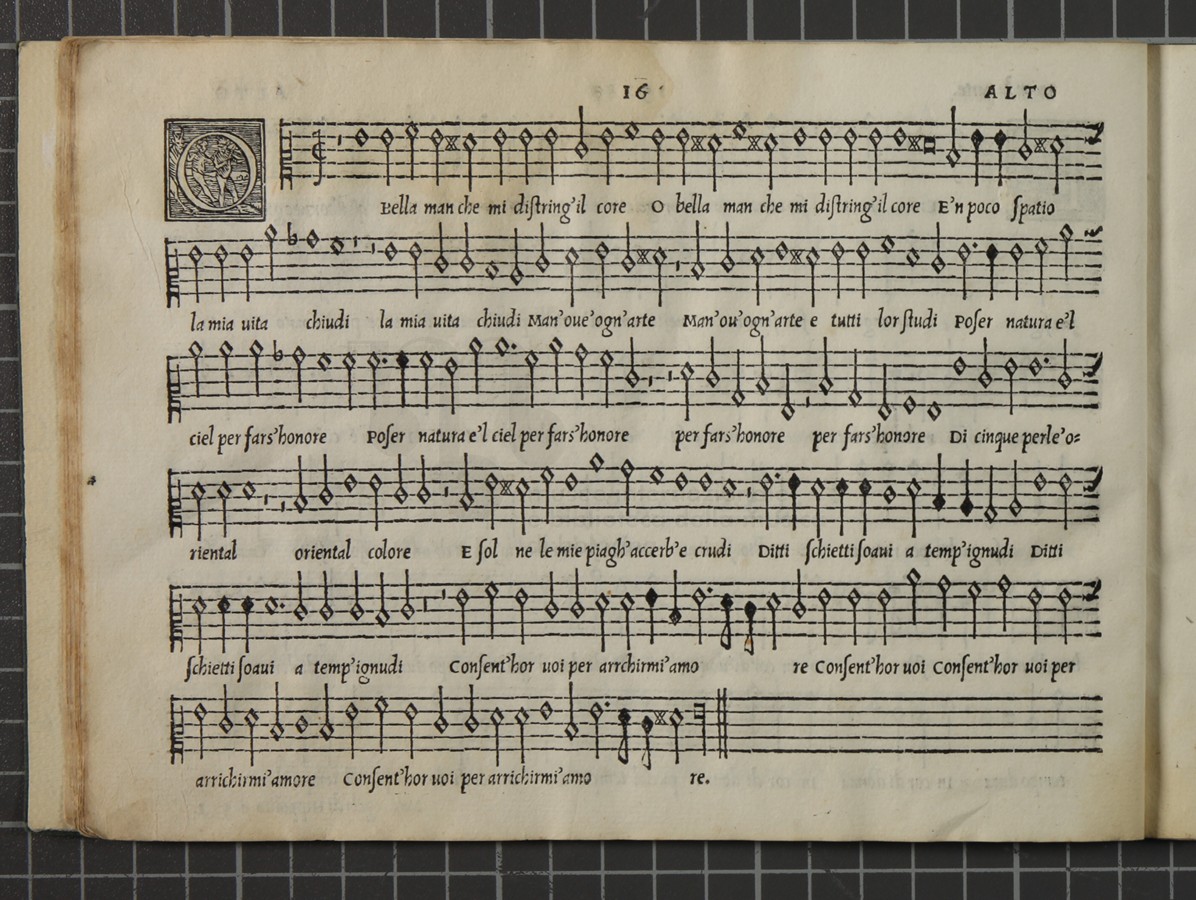 16 ALTO
O Bella man che mi diſtring'il core O bella man che mi diſtring'il core E'n poco ſpatio
la mia uita chiudi la mia uita chiudi Man'oue'ogn'arte Man'ou'ogn'arte e tutti lor ſtudi Poſer natura e'l
ciel per fars'honore Poſer natura e'l ciel per fars'honore per fars'honore per fars'honore Di cinque perle'o=
riental oriental colore E ſol ne le mie piagh'accerb'e crudi Diti ſchietti ſoaui a temp'ignudi Diti
ſchietti ſoaui a temp'ignudi Conſent'hor uoi per arrchirmi'amo re Conſent'hor uoi Conſent'hor uoi per
arrichirmi'amore Conſent'hor uoi per arrichirmi'amo re.